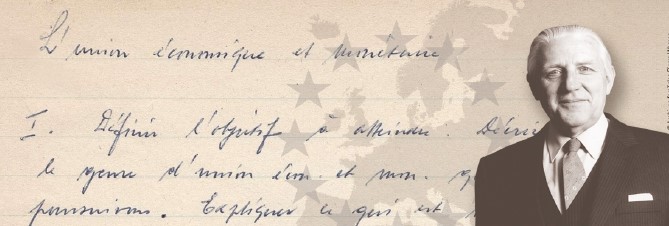 L'union économique et monétaire
I. Définir l'objectif à atteindre. Décrire
le genre d'union écon. et mon. q
poursuivons. Expliquer ce qui est